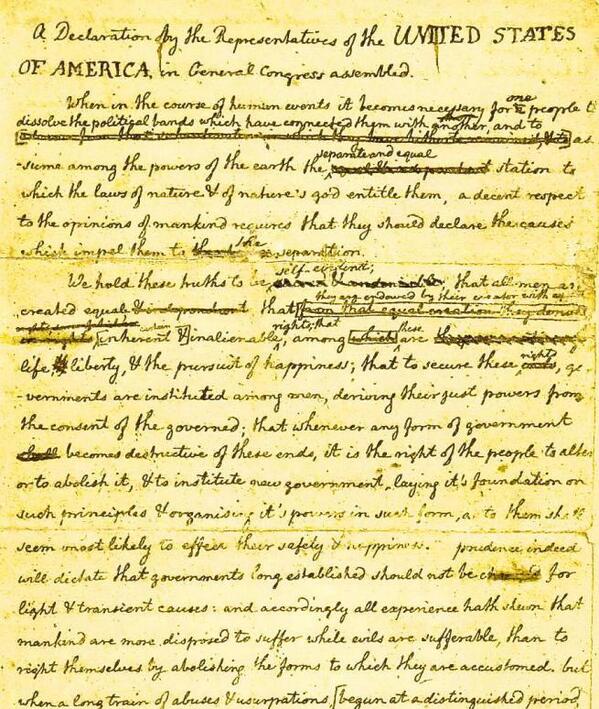 A Declaration by the Representatives of the UNITED STATES
OF AMERICA, in General Congress assembled.
When in the course of human events it becomes necessary for one people to
dissolve the political bands which have connected them with another, and to
as-
separate and equal
-sume among the powers of the earth the station to
which the laws of nature & of nature's god entitle them, a decent respect
to the opinions of mankind requires that they should declare the causes
which impel them to the separation.
self-evident;
We hold these truths to be that all men are
they are endowed by their creator with
created equal & independent that from that equal creation they derive
certain
rights; that these
in rights inherent & inalienable, among which are
rights
life, liberty, & the pursuit of happiness; that to secure these ends, go
-vernments are instituted among men, deriving their just powers from
the consent of the governed; that whenever any form of government
shall becomes destructive of these ends, it is the right of the people to alter
or to abolish it, & to institute new government, laying it's foundation on
such principles & organising it's powers in such form, as to them shall
seem most likely to effect their safety & happiness. prudence indeed
will dictate that governments long established should not be changed for
light & transient causes: and accordingly all experience hath shewn that
mankind are more disposed to suffer while evils are sufferable, than to
right themselves by abolishing the forms to which they are accustomed. but
when a long train of abuses & usurpations, [begun at a distinguished period,